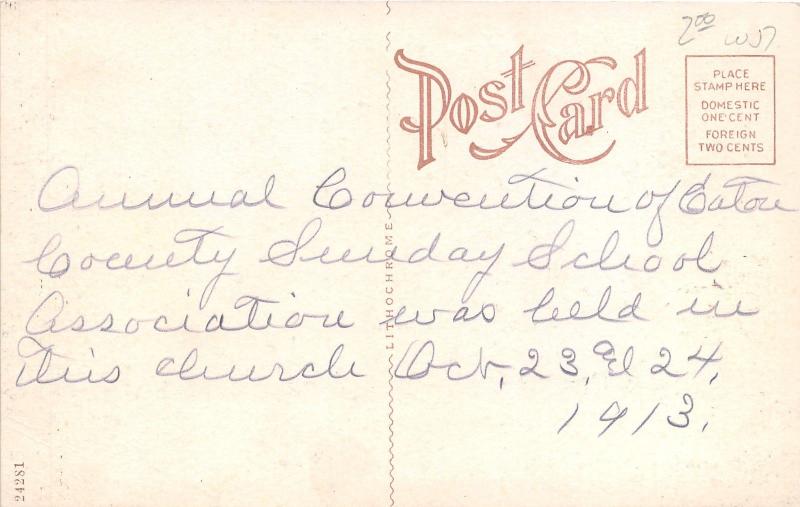 2.00 WSJ
Post Card
PLACE
STAMP HERE
DOMESTIC
ONE CENT
FOREIGN
TWO CENTS
Annual Convention of Eaton
County Sunday School
Association was held in
this church Oct, 23, & 24,
1913.
LITHOCHROME
24281